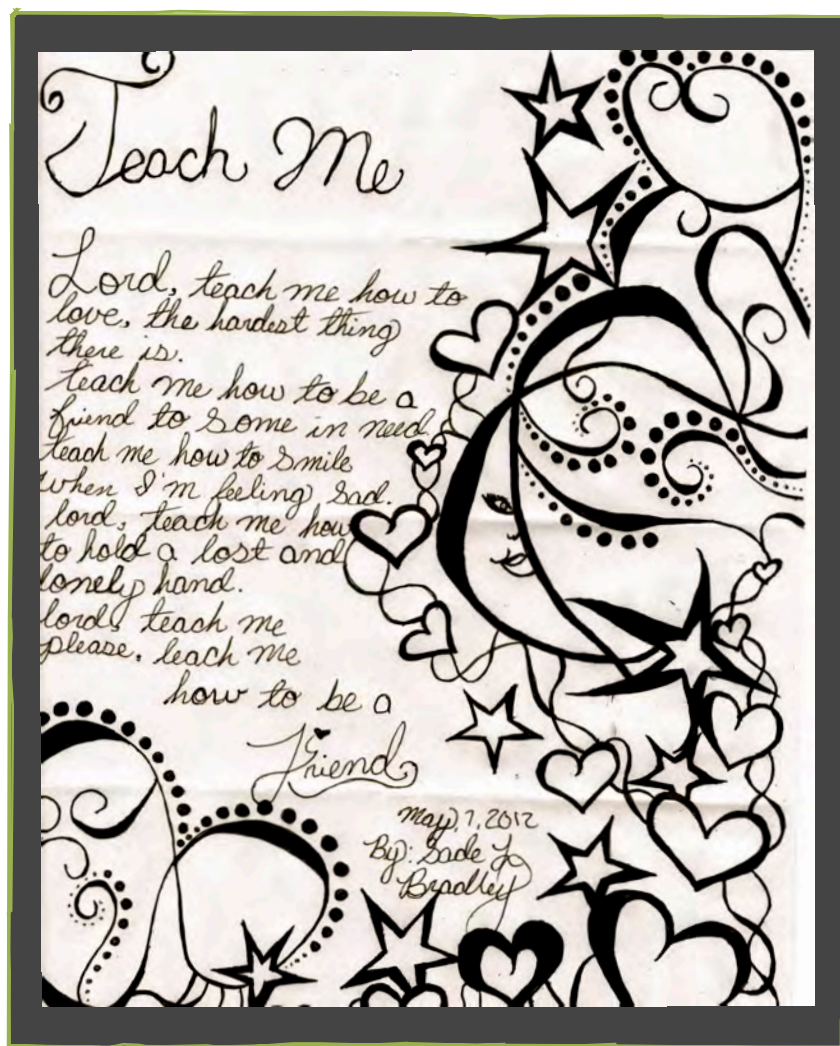 Teach Me
Lord, teach me how to
love, the hardest thing
there is.
teach me how to be a
friend to some in need.
teach me how to smile
when I'm feeling sad.
lord, teach me how
to hold a lost and
lonely hand.
lord, teach me
please, teach me
how to be a
Friend
May, 7, 2012
By: Sade L
Bradley